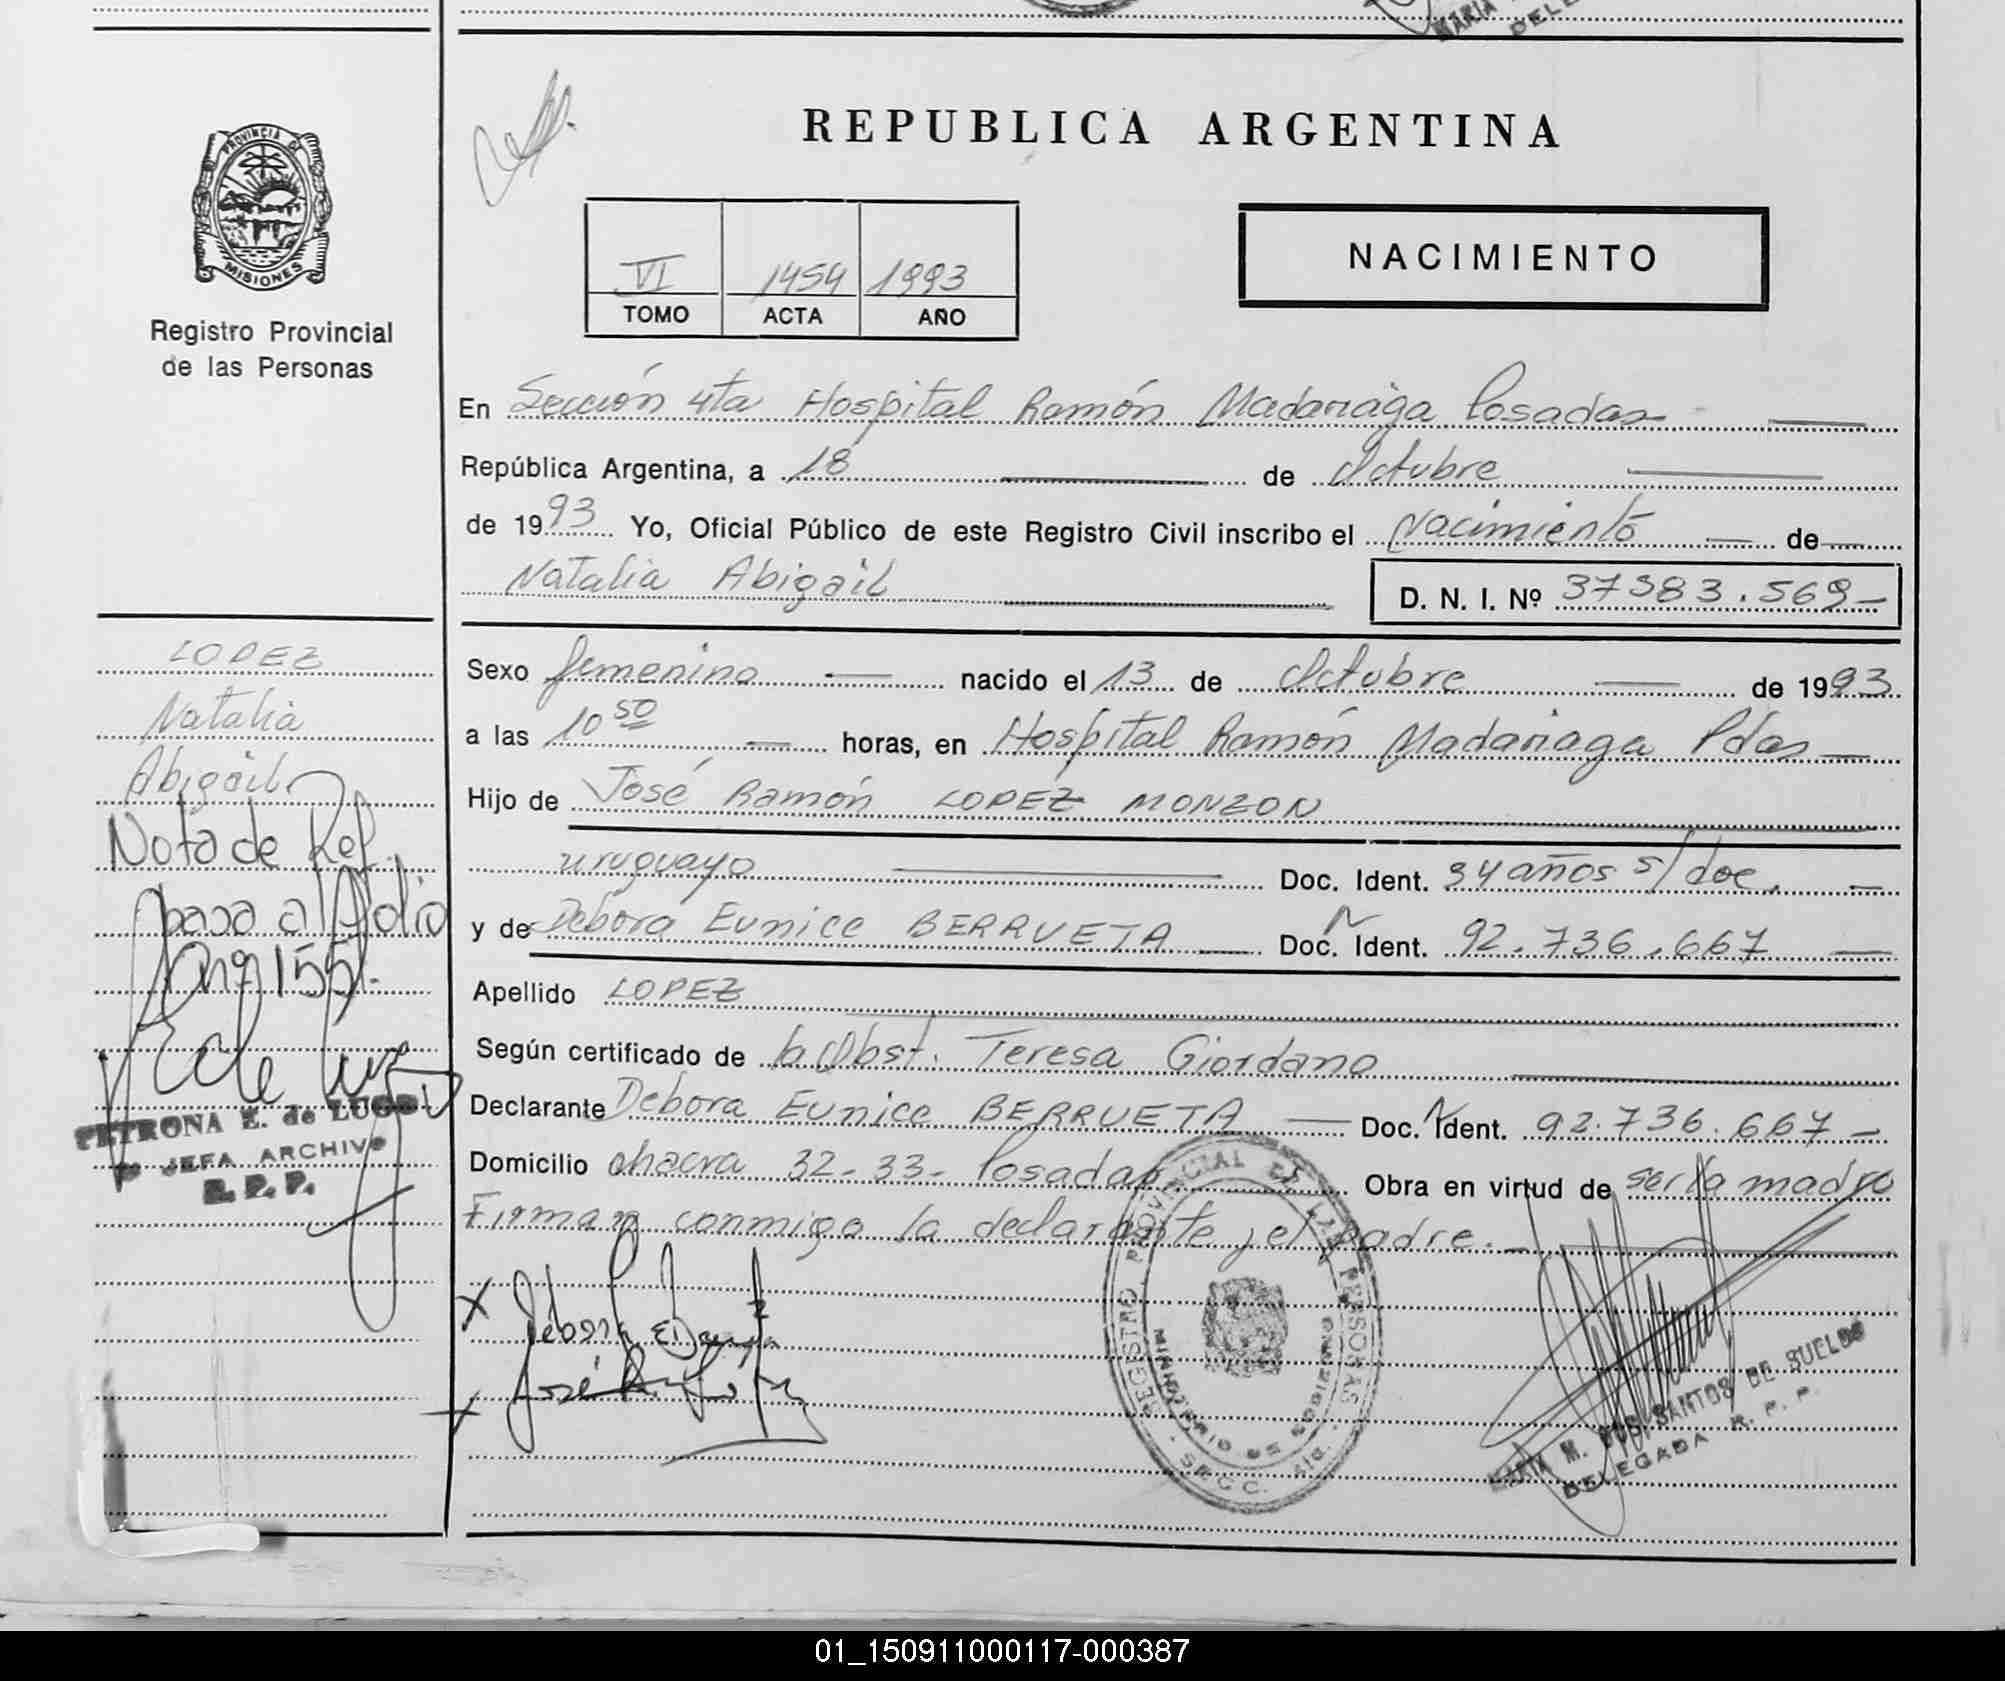 MARIA
DELE
REPUBLICA ARGENTINA
PROVINCIA DE
MISIONES
Registro Provincial
de las Personas
VI 1454 1993
TOMO ACTA AÑO
NACIMIENTO
En Sección 4ta Hospital Ramón Madariaga Posadas
República Argentina, a 18 de Octubre
de 1993 Yo, Oficial Público de este Registro Civil inscribo el Nacimiento de
Natalia Abigail D. N. I. Nº 37383.569
LOPEZ
Natalia
Abigail
Nota de Ref.
pasa al folio
Nº 155
PETRONA E. de LUGO
JEFA ARCHIVO
R. P. P.
Sexo femenino nacido el 13 de Octubre de 1993
a las 10 50 horas, en Hospital Ramón Madariaga Pdas
Hijo de José Ramón LOPEZ MONZON
uruguayo Doc. Ident. 34 años s/doc.
y de Debora Eunice BERRUETA Doc. N Ident. 92.736.667
Apellido LOPEZ
Según certificado de la Obst. Teresa Giordano
Declarante Debora Eunice BERRUETA Doc. N Ident. 92.736.667
Domicilio chacra 32-33- Posadas Obra en virtud de ser la madre
Firman conmigo la declarante y el padre.
REGISTRO PROVINCIAL DE LAS PERSONAS
MINISTERIO DE GOBIERNO
MARIA M. DOS SANTOS DE SUELDO
DELEGADA R. P. P.
01_150911000117-000387